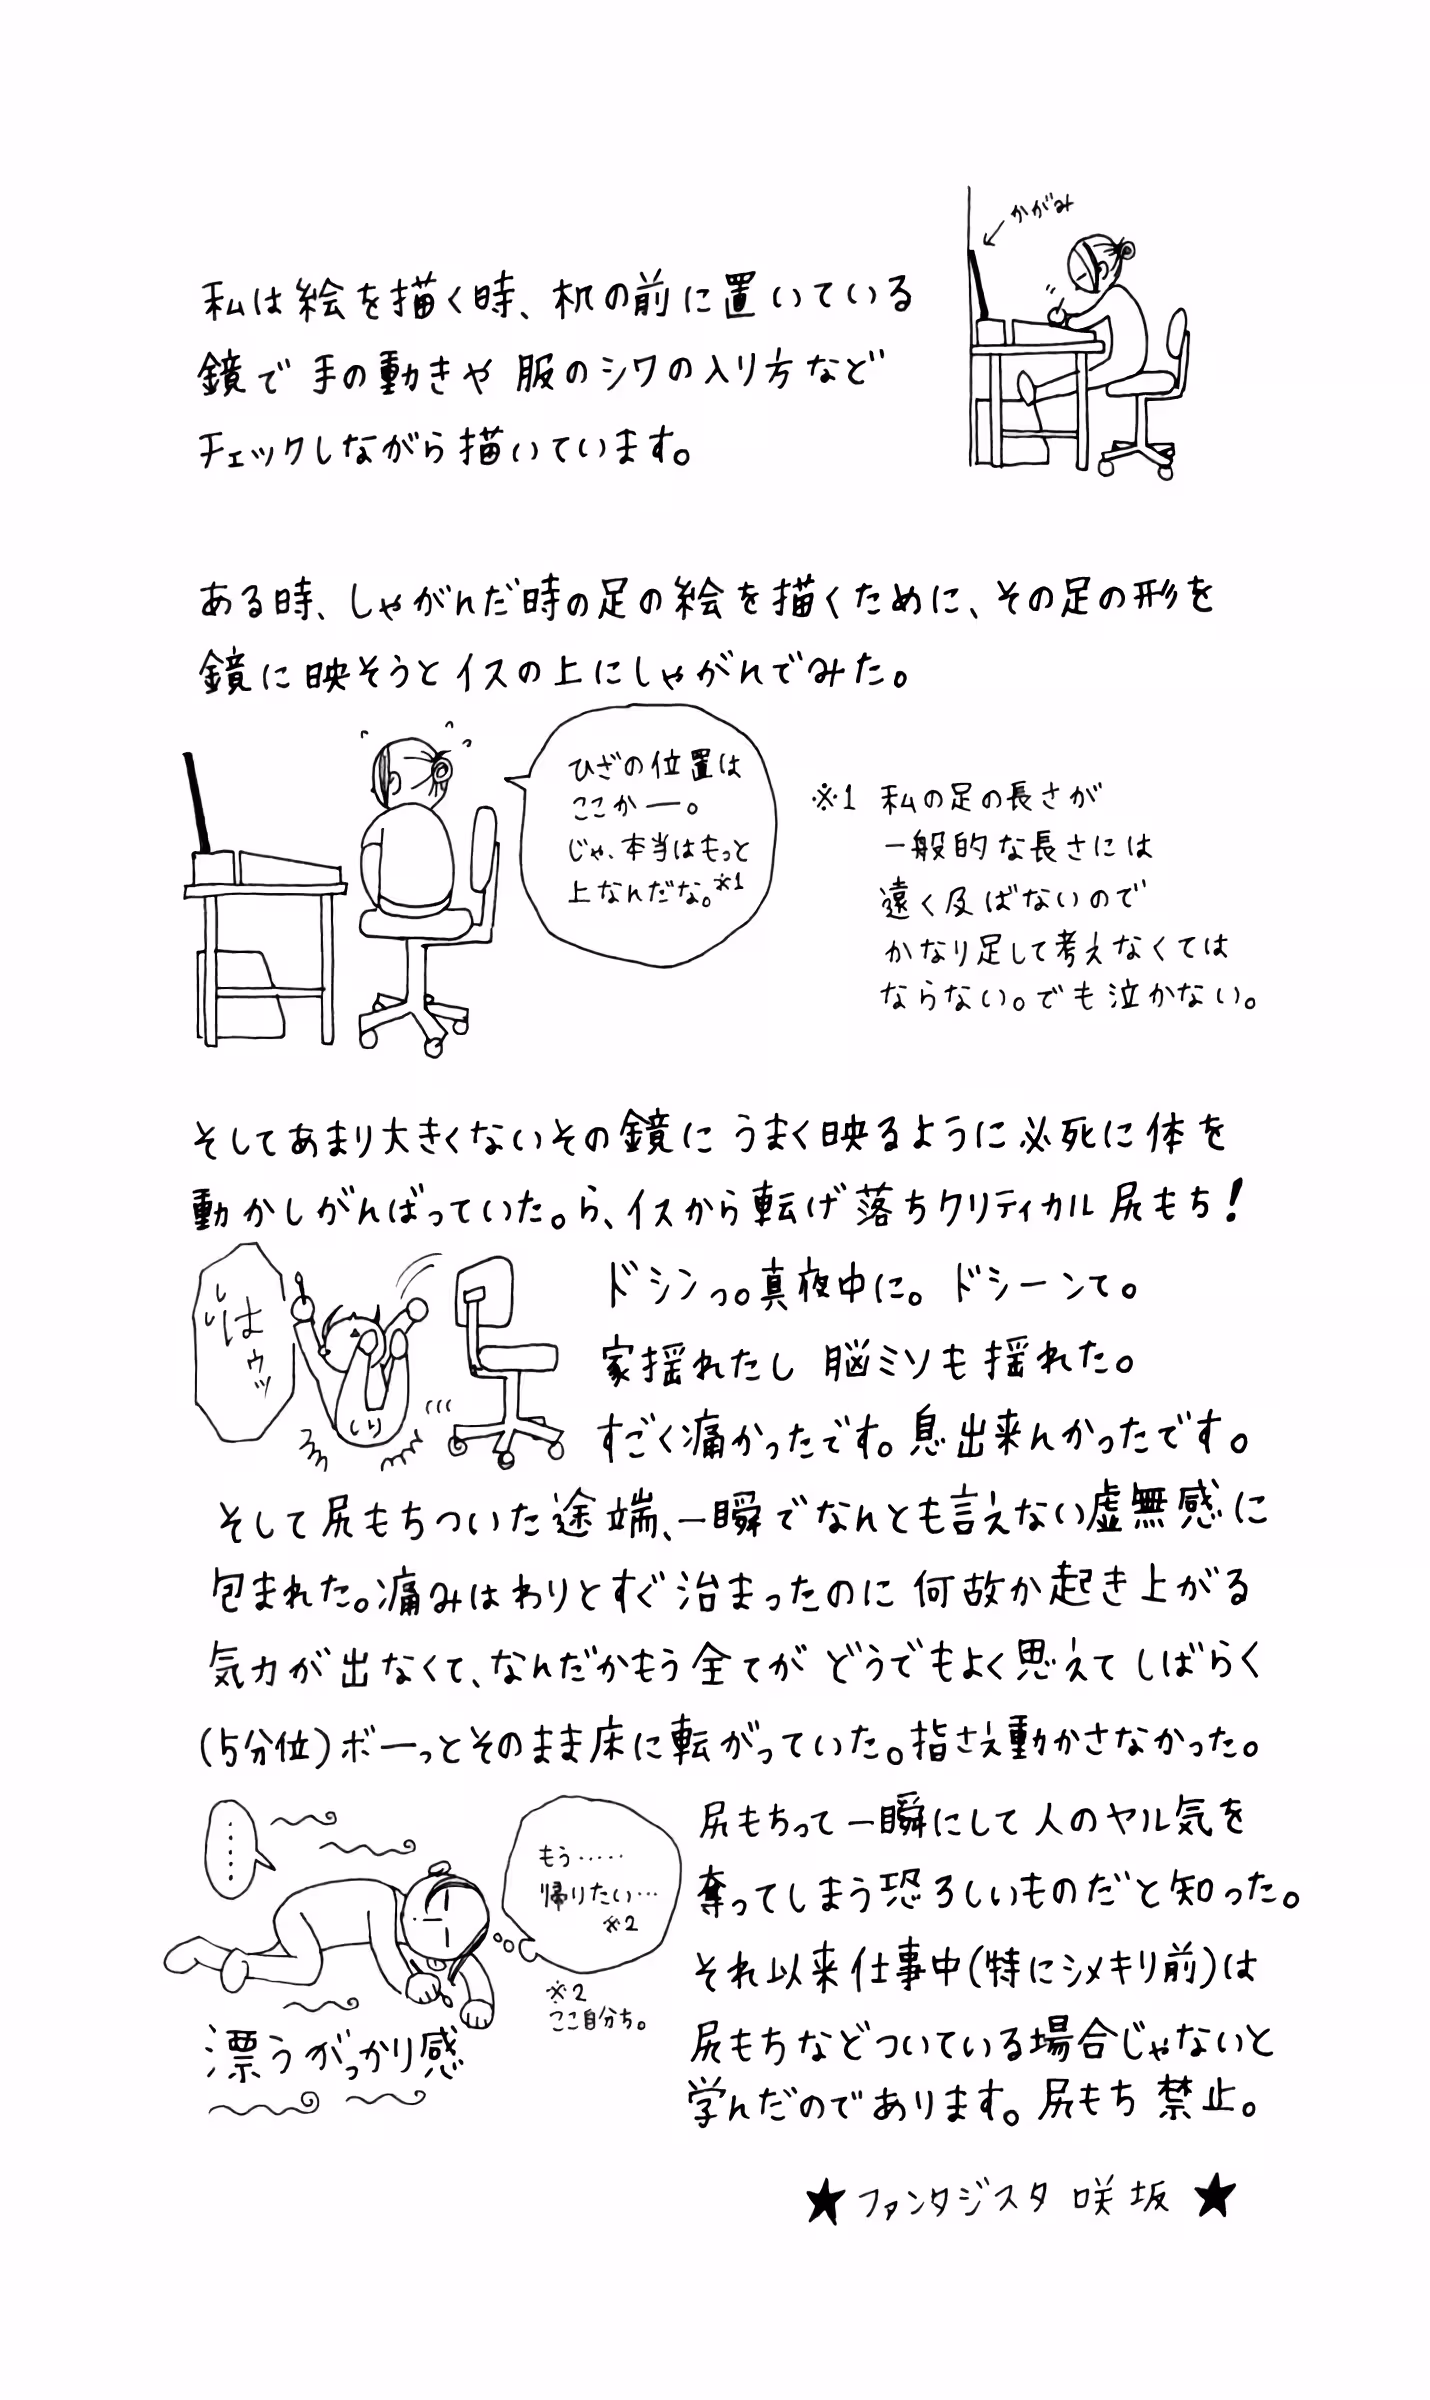 かがみ
私は絵を描く時、机の前に置いている
鏡で 手の動きや 服のシワの入り方など
チェックしながら描いています。
ある時、しゃがんだ時の足の絵を描くために、その足の形を
鏡に映そうとイスの上にしゃがんでみた。
ひざの位置は
ここかー。
じゃ、本当はもっと
上なんだな。※1
※1 私の足の長さが
一般的な長さには
遠く及ばないので
かなり足して考えなくては
ならない。でも泣かない。
そしてあまり大きくないその鏡に うまく映るように必死に体を
動かしがんばっていた。ら、イスから転げ落ちクリティカル尻もち!
ドシンっ。真夜中に。ドシーンて。
家揺れたし 脳ミソも揺れた。
すごく痛かったです。息出来んかったです。
はウッ
しり
そして尻もちついた途端、一瞬でなんとも言えない虚無感に
包まれた。痛みはわりとすぐ治まったのに 何故か起き上がる
気力が出なくて、なんだかもう全てが どうでもよく思えてしばらく
(5分位)ボーっとそのまま床に転がっていた。指さえ動かさなかった。
……
もう……
帰りたい…
※2
※2
ここ自分ち。
漂うがっかり感
尻もちって一瞬にして人のヤル気を
奪ってしまう恐ろしいものだと知った。
それ以来仕事中(特にシメキリ前)は
尻もちなどついている場合じゃないと
学んだのであります。尻もち 禁止。
★ファンタジスタ 咲坂★